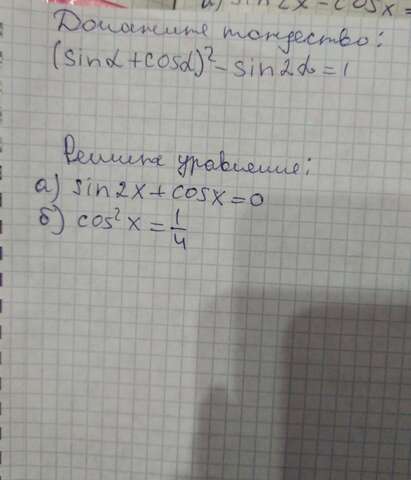 а) sin2x - cosx =
Докажите тождество:
(sinα+cosα)²-sin2α=1
Решите уравнение:
а) sin2x+cosx=0
б) cos²x=1/4